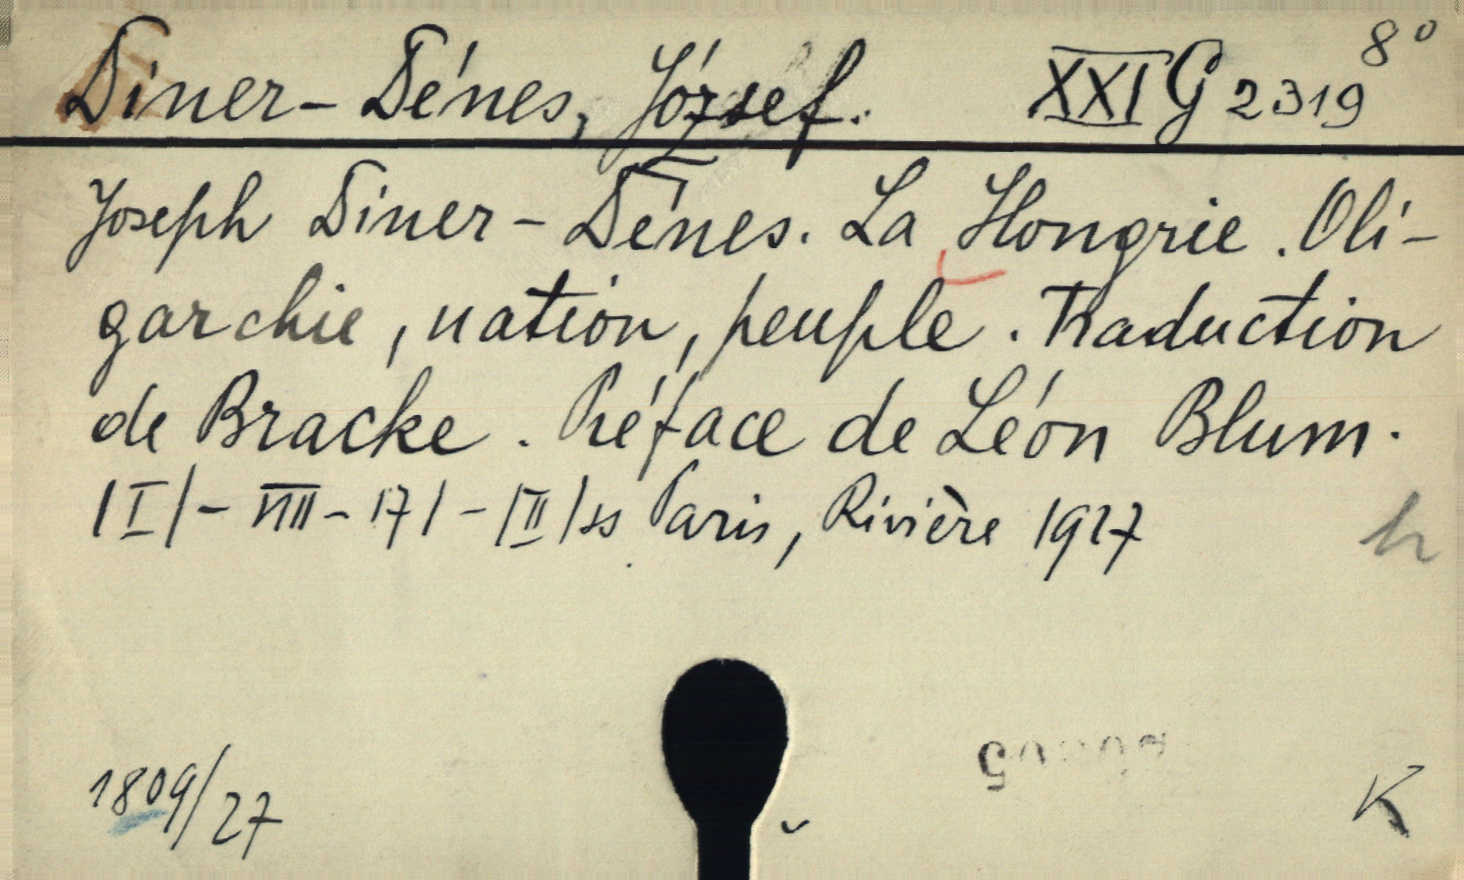 Diner-Dénes, József. XXI G 2319 8°
Joseph Diner-Dénes. La Hongrie. Oli-
garchie, nation, peuple. Traduction
de Bracke. Préface de Léon Blum.
|I|-VIII-171-|II|ss Paris, Rivière 1927
h
1809/27
K